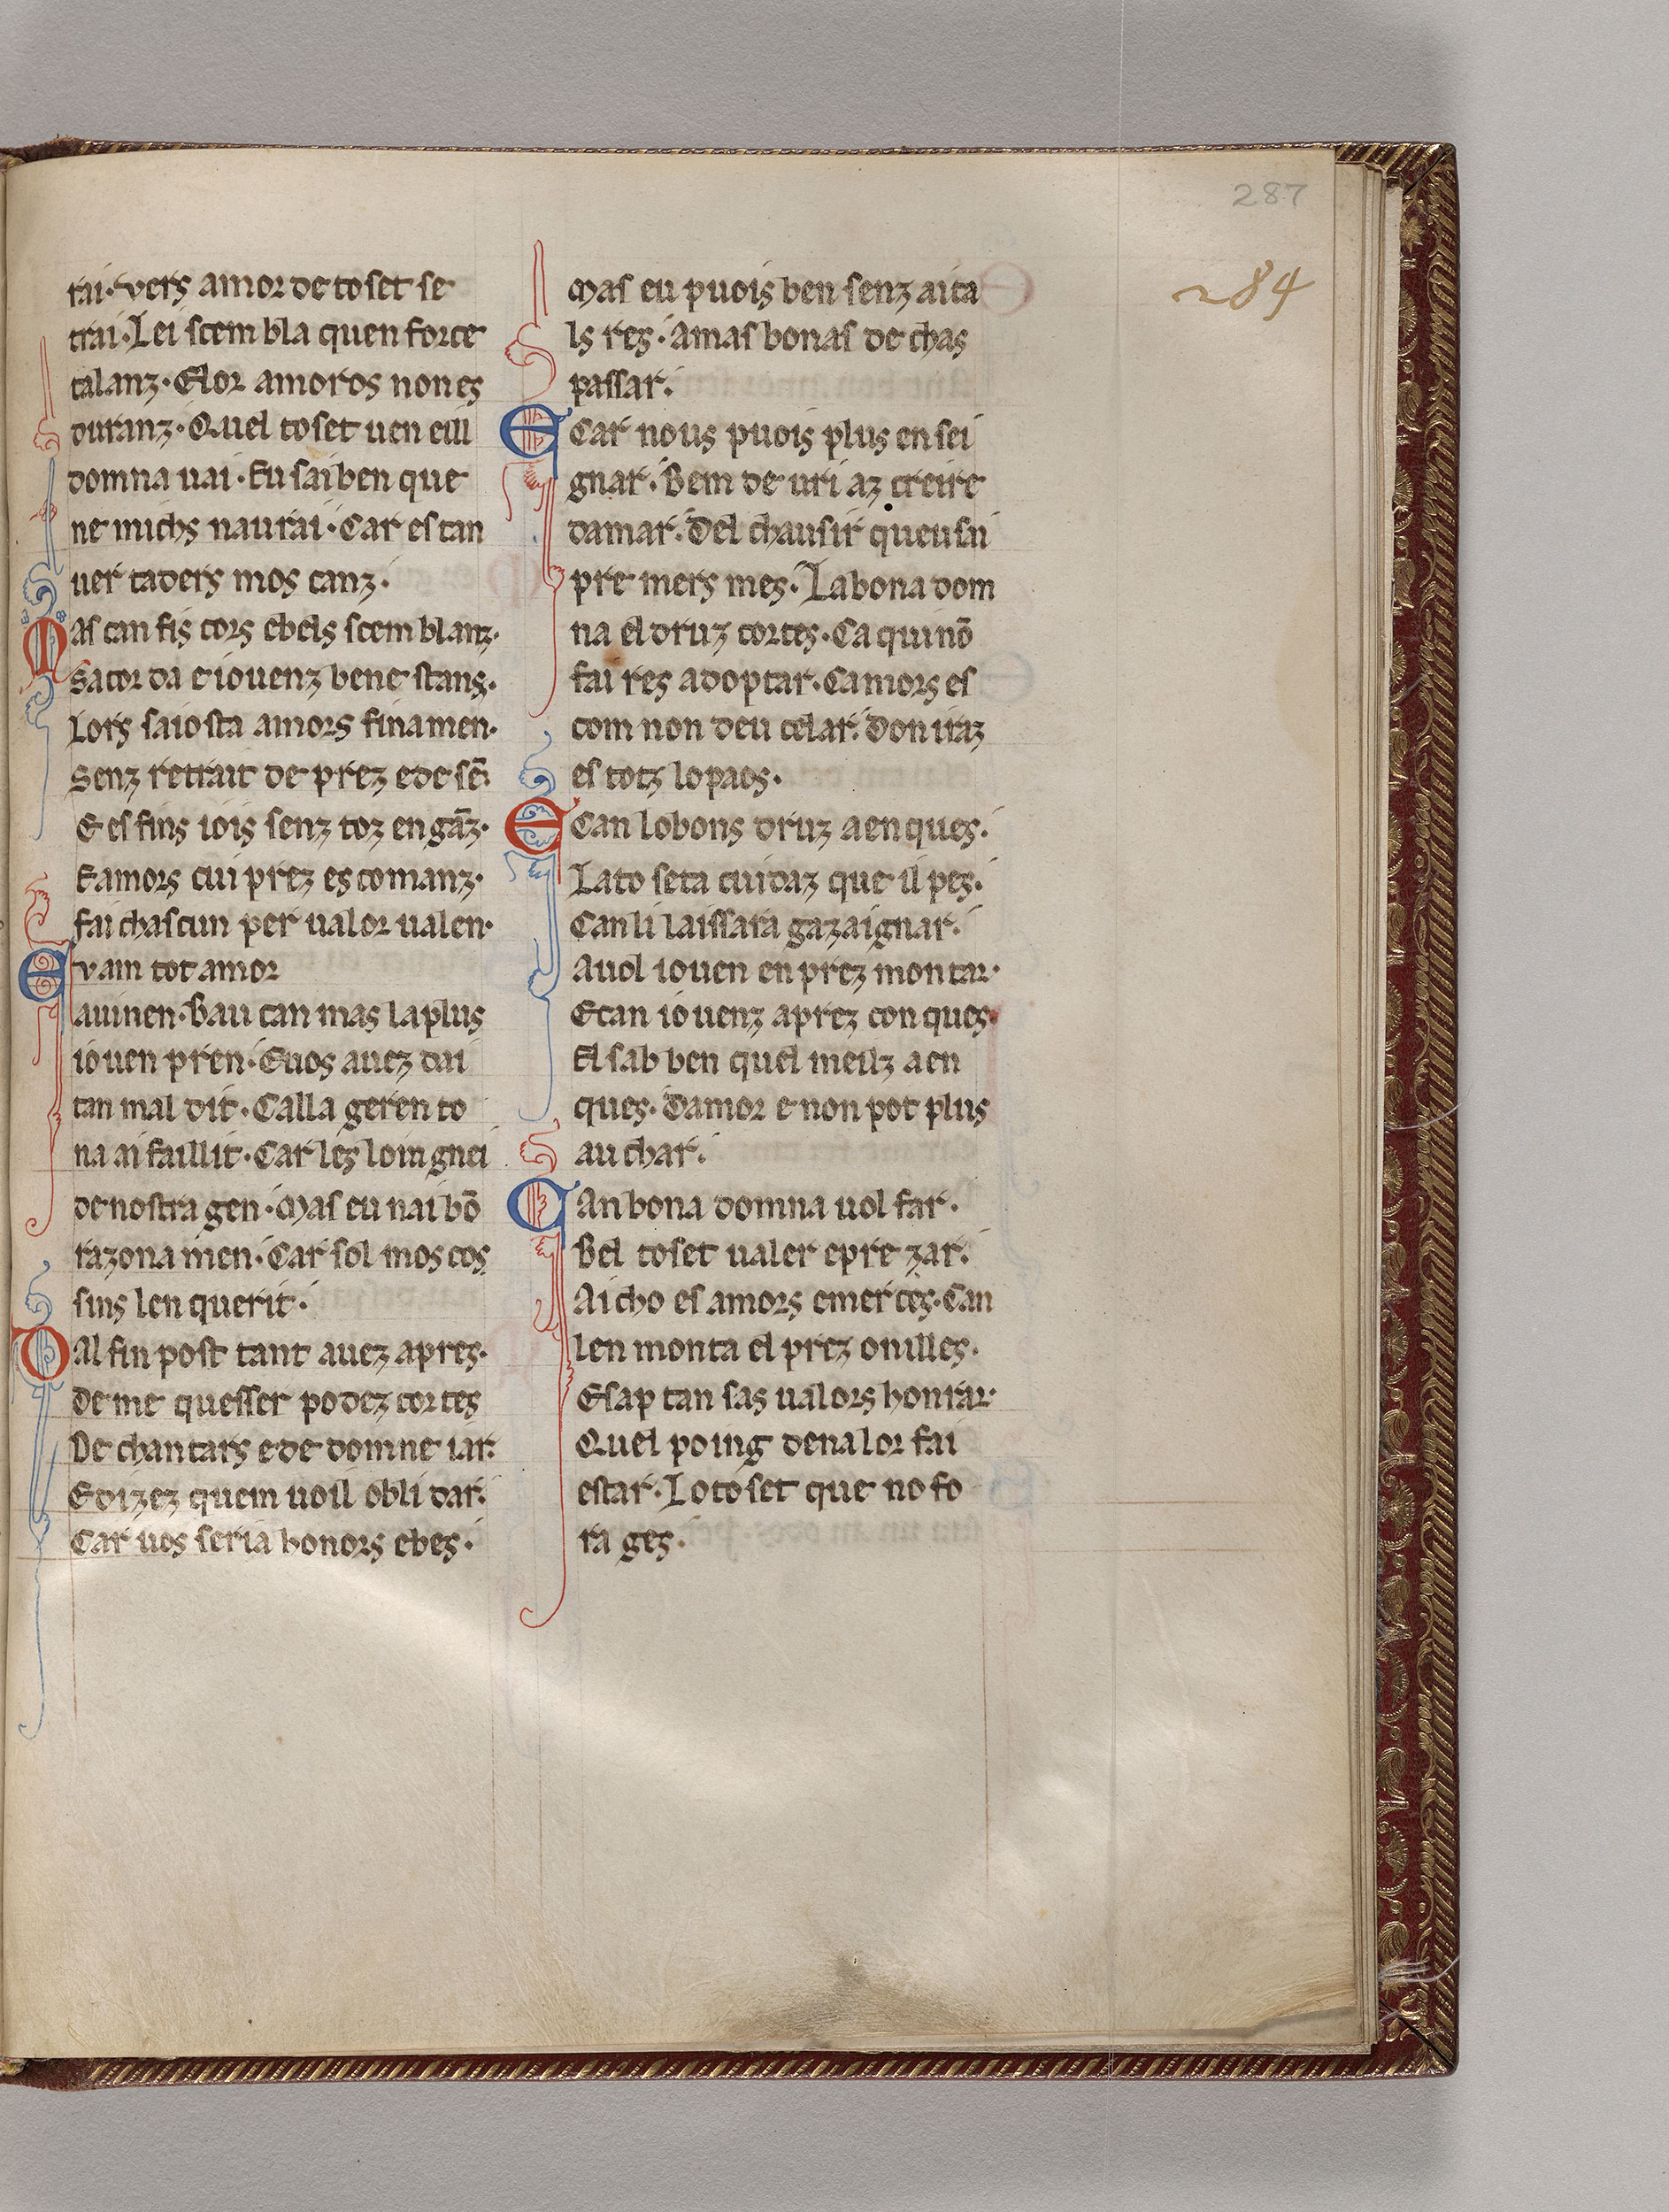 287
284
rai·vers amor de toset se
trai·Lei scem bla quen force
talanz·Elor amoros non es
duranz·Quel toset uen eill
domna uai·Eu sai ben que
ne michs naurai·Car es tan
uer taders mos canz·
Mas can fis cors ebels scem blanz·
Sacor da e iouenz bene stans·
Lors saiosta amors finamen·
Senz retrait de prez ede sē·
E es fins iois senz toz en gāz·
Eamors cui prez es comanz·
fai chascun per ualor ualen·
E vain tot amor
auinen·Bau can mas la plus
iouen pren·Euos auez dai
tan mal dit·Calla geren to
na ai faillit·Car les loingnei
de nostra gen·Mas eu nai bō
razona men·Car sol mos cos
sins len querit·
Dal fin post tant auez apres·
de me quesser podez cortes
De chantars ede domne iar·
Edizez quem uoil obli dar·
Car uos seria honors ebes·
Mas eu puois ben senz aita
ls res·Amas bonas de chas
passar·
E Car nous puois plus en sei
gnar·Bem de uri az creire
damar·Del chausir queusai
pre mers mes·La bona dom
na el druz cortes·Ca qui nō
fai res adoptar·Camors es
com non deu celar·Don iraz
es totz lo paes·
E Can lobons druz aen ques·
Lato seta cuidaz que il pes·
Can li laissara gazaignar·
Auol iouen en prez montar·
Ecan iouenz aprez con ques·
El sab ben quel meilz a en
ques·Damor e non pot plus
au char·
CAn bona domna uol far·
Bel toset ualer epre zar·
Aicho es amors emerces·Can
len monta el prez onilles·
Esap tan sas ualors honrar·
Quel poing denalor fai
estar·Lo toset que no fo
ra ges·